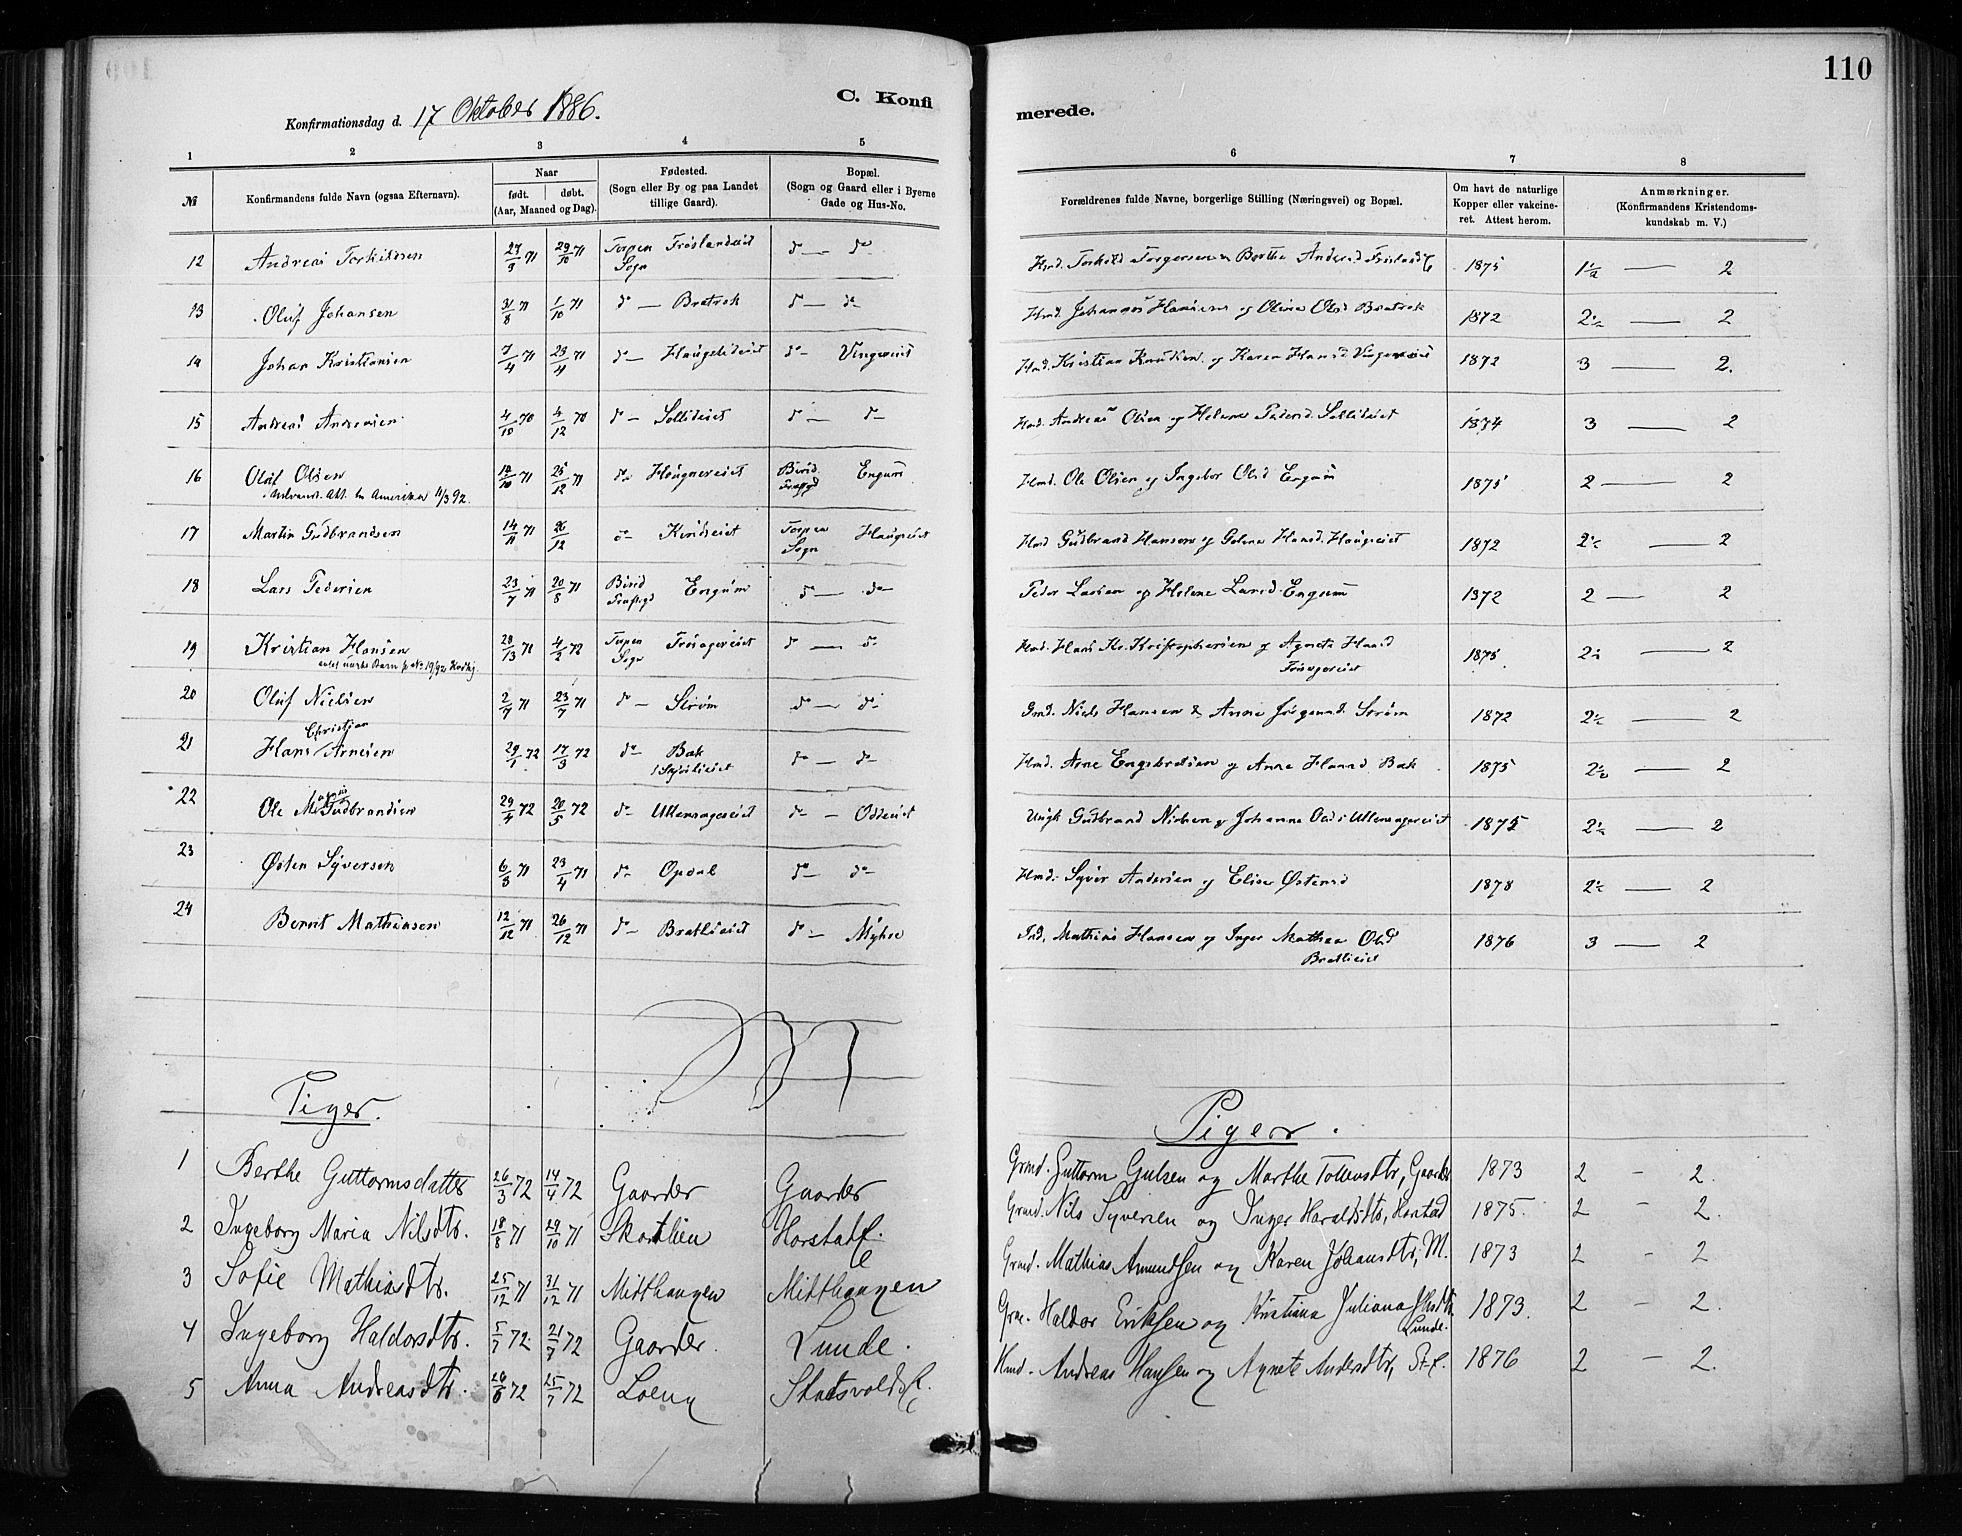 110
Konfirmationsdag d. 17 Oktober 1886.
C. Konfi
merede.
1 2 3 4 5 6 7 8
№ Konfirmandens fulde Navn (ogsaa Efternavn). Naar født. døbt. (Aar, Maaned og Dag). Fødested. (Sogn eller By og paa Landet tillige Gaard). Bopæl. (Sogn og Gaard eller i Byerne Gade og Hus-No. Forældrenes fulde Navne, borgerlige Stilling (Næringsvei) og Bopæl. Om havt de naturlige Kopper eller vakcineret. Attest herom. Anmærkninger. (Konfirmandens Kristendomskundskab m. V.)
12 Andreas Torkildsen 71 29/10 71 Torpen Sogn d° — d° Hmd. Torkild Torgersen Berthe Andersd 1875 2
13 Oluf Johansen 31/8 71 1/10 71 d° — Bratrok d° — d° Hmd. Johannes Hansen og Oline Olsd Bratrok 1872 2½ — 2
14 Johan Kristiansen 7/4 71 23/4 71 d° — Haugslieiet d° — Vingereiet Hmd. Kristian Knudsen og Karen Hansd. Vingereiet 1872 3 — 2.
15 Andreas Andresen 4/10 70 4/12 70 d° — Sollieiet d° — d° Hmd. Andreas Olsen og Helene Pedersd. Sollieiet 1874 3 — 2
16 Oluf Olsen 71 25/12 71 d° Haugnereiet Birid Engum Hmd. Ole Olsen og Ingebor Olsd Engum 1875 2 — 2
Udvand. Att. t. Amerika 11/3 92.
17 Martin Gudbrandsen 14/11 71 26/12 d° — Kindseiet Torpen Sogn Haugeiet Hmd Gudbrand Hansen og Hansd. Haugeiet 1872 2½ — 2
18 Lars Pedersen 23/7 71 20/8 71 Birid Engum d° — d° Peder Larsen og Helene Larsd. Engum 1872 2 — 2
19 Kristian Hansen 71 4/2 72 Torpen Sogn d° — d° Hmd. Hans Kr. Kristophersen og Agnete Hansd 1875. 2
20 Oluf Nielsen 2/7 71 23/7 71 d° — Strøm d° — d° Gmd. Niels Hansen & Anne Strøm 1872 2½ — 2
21 Hans Christian Arnesen 29/1 72 17/3 72 d° Bak d° — d° Hmd. Arne Engebretsen og Anne Hansd Bak 1875 2½ — 2
22 Ole Gudbrandsen 29/4 72 20/5 72 d° d° — Oddeiet Ungk Gudbrand Nielsen og Johanne Olsd 1875 2½ — 2
23 Østen Syversen 6/3 71 23/4 71 d° Opdal d° — d° Hmd. Syver Andersen og Elise Østensd 1878 2½ — 2
24 Bernt Mathiasen 12/12 71 26/12 71 d° — Bratlieiet d° — Myhre Ind. Mathias Hansen og Inger Mathea Olsd Bratlieiet 1876 3 — 2
Piger.
Piger.
1 Berthe Guttormsdatter 26/3 72 14/4 72 Gaarder Gaarder Grmd. Guttorm Gulsen og Marthe Tollevsdtr, Gaarder 1873 2 – 2.
2 Ingeborg Maria Nilsdtr. 18/8 71 29/10 71 Skartlien Grmd. Nils Syversen og Inger Haraldsdtr, Horstad 1875. 2 – 2.
3 Sofie Mathiasdtr. 25/12 71 31/12 71 Mitthaugen Mitthaugen Grmd. Mathias Amundsen og Karen Johansdtr, M. 1873 2 – 2
4 Ingeborg Haldorsdtr. 5/7 72 21/7 72 Gaarder. Lunde. Haldor Eriksen og Kristiana Juliana Lunde. 1873. 2 – 2.
5 Anna Andreasdtr. 72 25/7 72 Loeng Hmd. Andreas Hansen og Agnete Andersdtr, 1876 2 – 2.